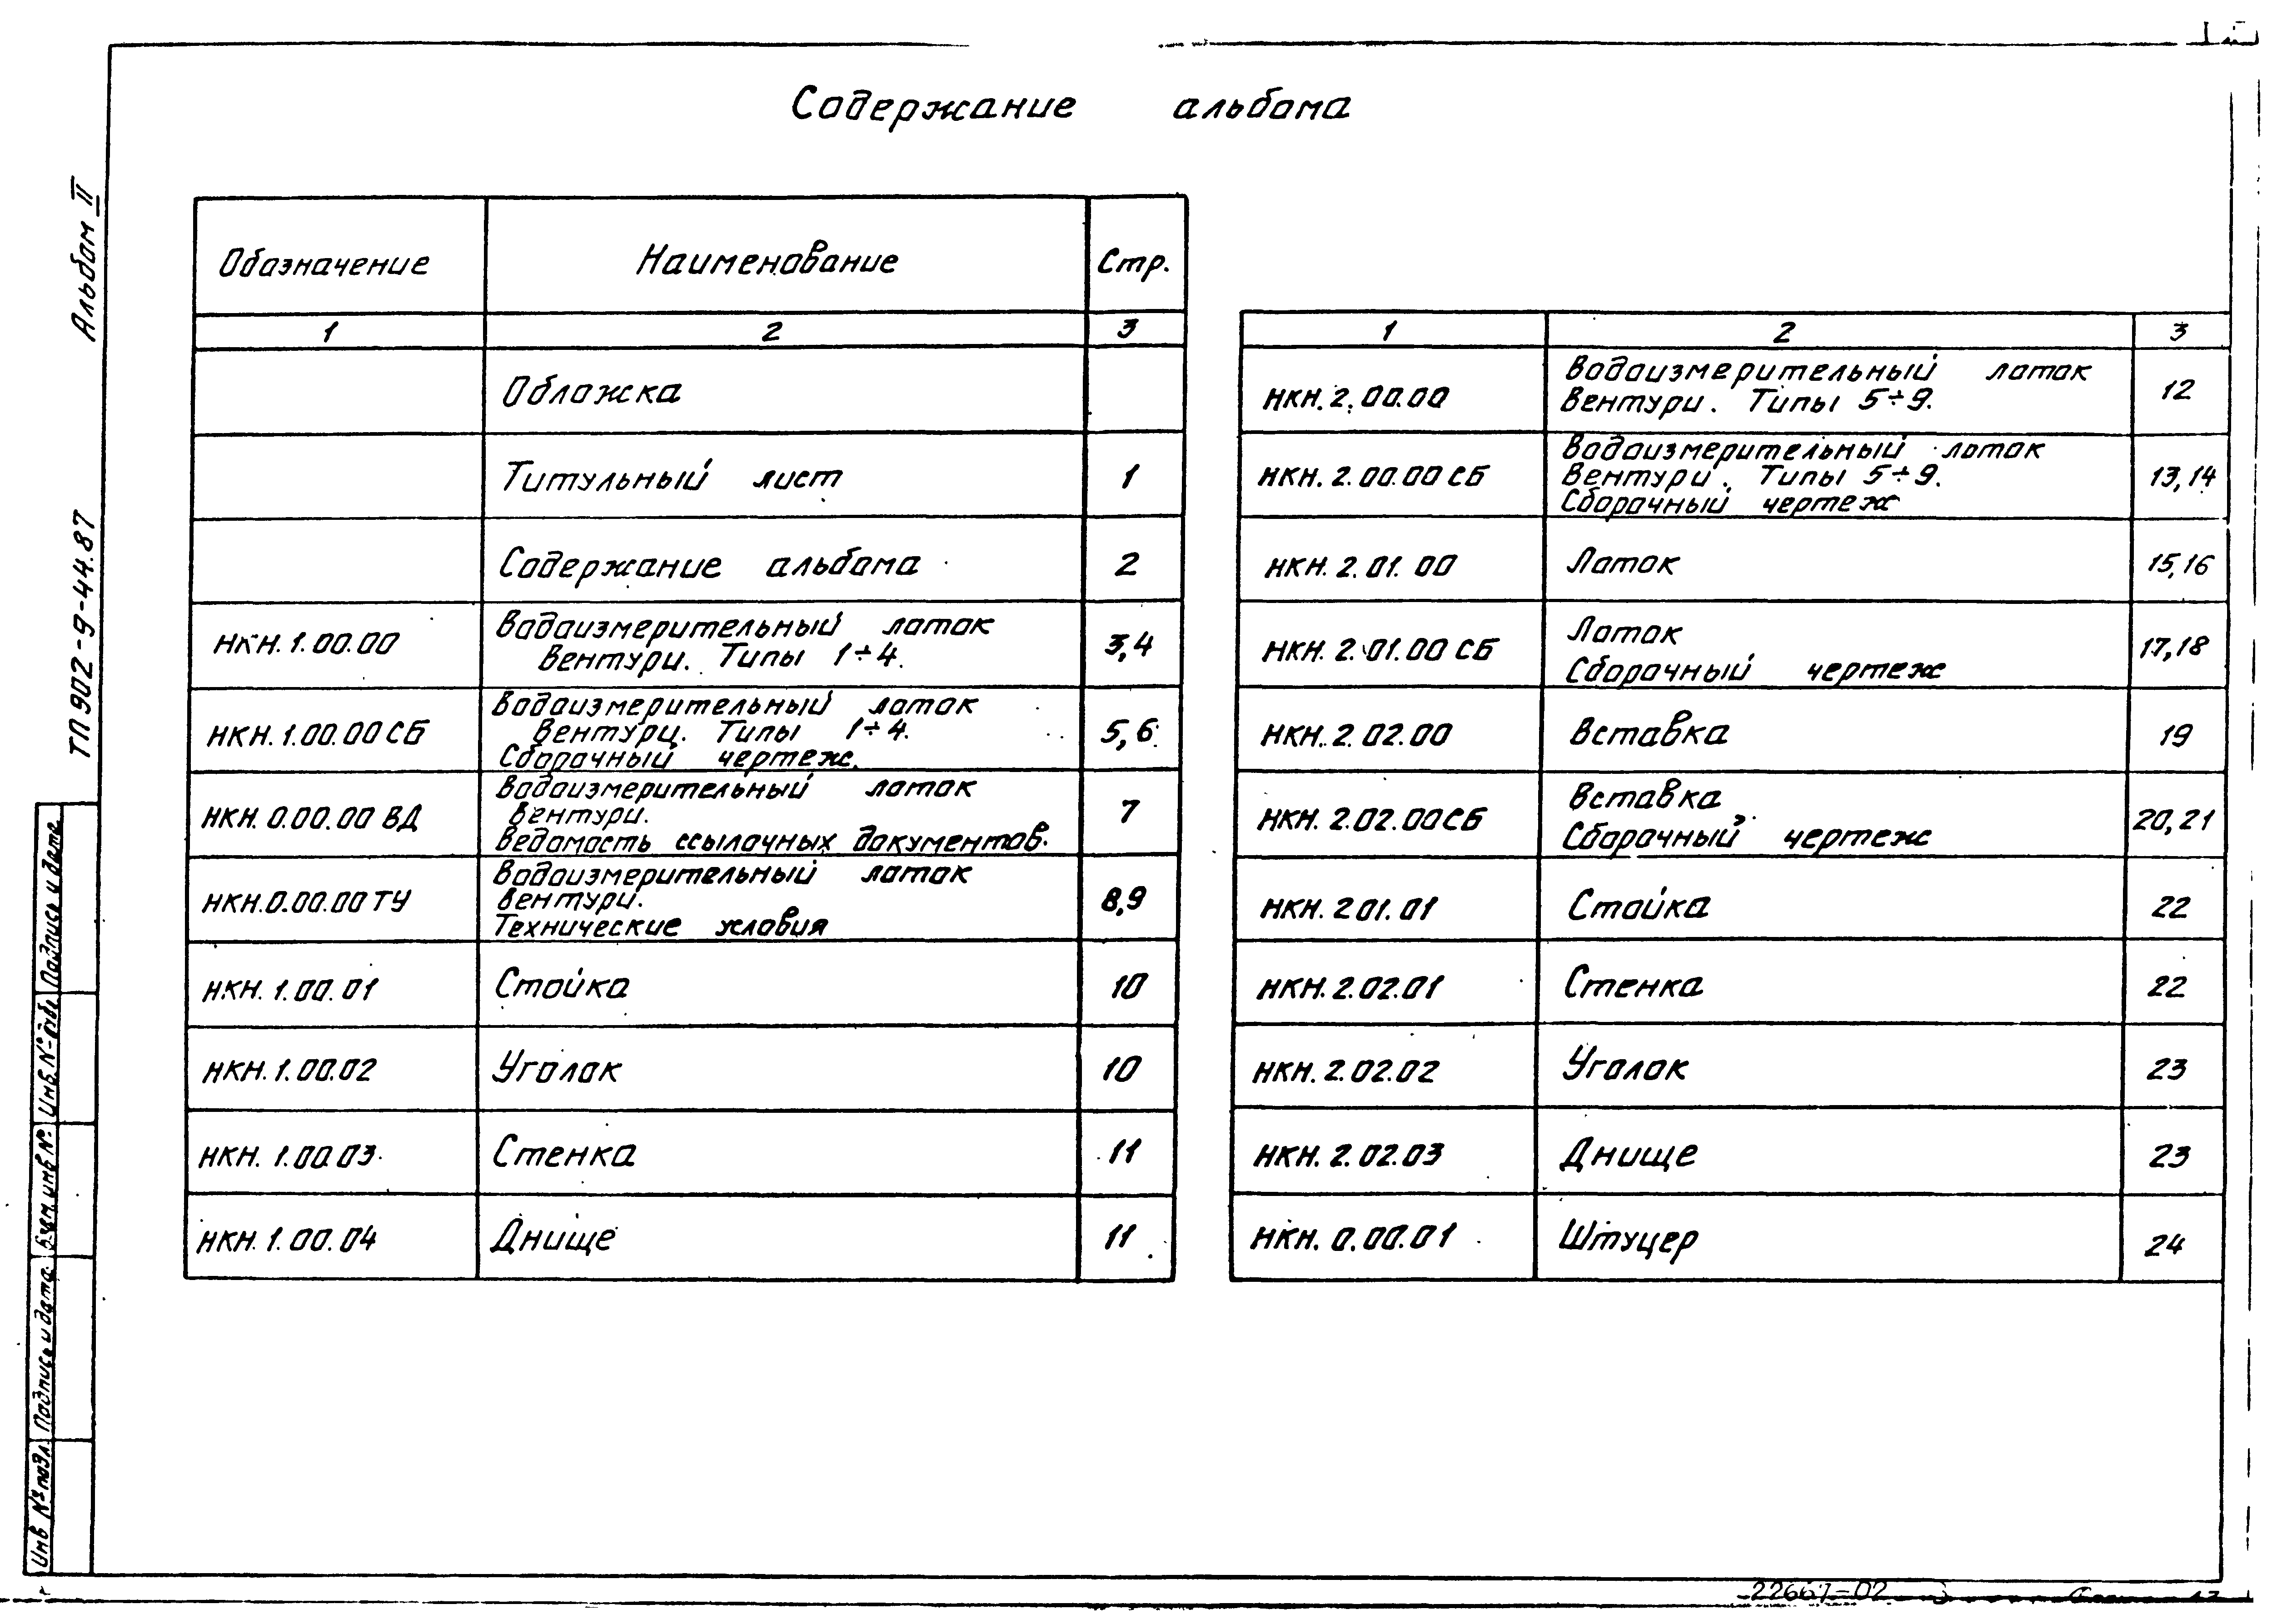 Содержание альбома
Альбом II
ТП 902-9-44.87
Обозначение Наименование Стр.
1 2 3
Обложка
Титульный лист 1
Содержание альбома 2
НКН.1.00.00 Водоизмерительный лоток
Вентури. Типы 1÷4. 3,4
НКН.1.00.00 СБ Водоизмерительный лоток
Вентури. Типы 1÷4.
Сборочный чертеж. 5,6
НКН.0.00.00 ВД Водоизмерительный лоток
Вентури.
Ведомость ссылочных документов. 7
НКН.0.00.00 ТУ Водоизмерительный лоток
Вентури.
Технические условия 8,9
НКН.1.00.01 Стойка 10
НКН.1.00.02 Уголок 10
НКН.1.00.03 Стенка 11
НКН.1.00.04 Днище 11
1 2 3
НКН.2.00.00 Водоизмерительный лоток
Вентури. Типы 5÷9. 12
НКН.2.00.00 СБ Водоизмерительный лоток
Вентури. Типы 5÷9.
Сборочный чертеж 13,14
НКН.2.01.00 Лоток 15,16
НКН.2.01.00 СБ Лоток
Сборочный чертеж 17,18
НКН.2.02.00 Вставка 19
НКН.2.02.00 СБ Вставка
Сборочный чертеж 20,21
НКН.2 01.01 Стойка 22
НКН.2.02.01 Стенка 22
НКН.2.02.02 Уголок 23
НКН.2.02.03 Днище 23
НКН.0.00.01 Штуцер 24
Подпись и дата
Инв № дубл.
Взам. инв №
Подпись и дата
Инв № подл.
22667-02 3